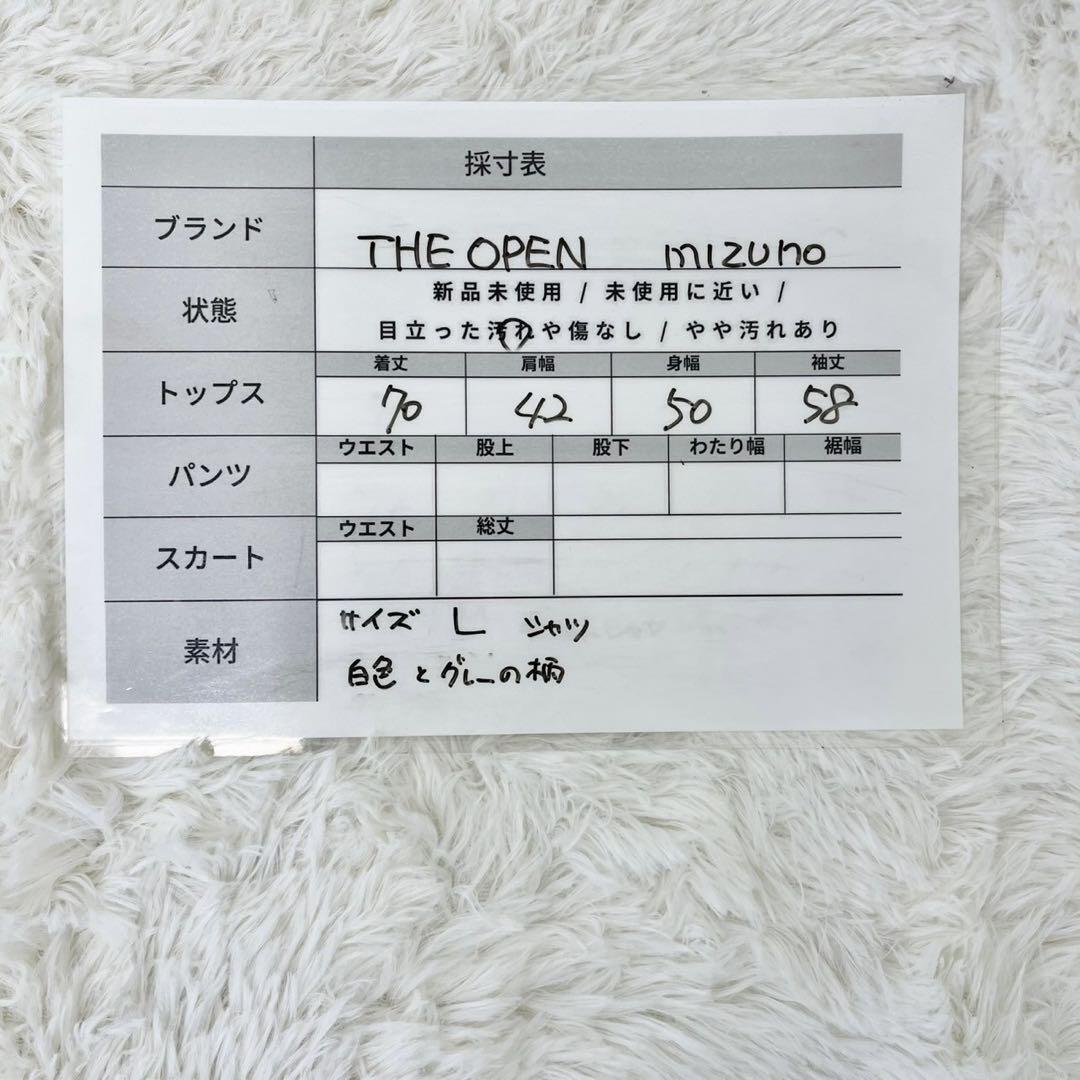 採寸表
ブランド THE OPEN mizuno
状態 新品未使用 / 未使用に近い /
目立った汚れや傷なし / やや汚れあり
トップス 着丈 肩幅 身幅 袖丈
70 42 50 58
パンツ ウエスト 股上 股下 わたり幅 裾幅
スカート ウエスト 総丈
素材 サイズ L シャツ
白色とグレーの柄